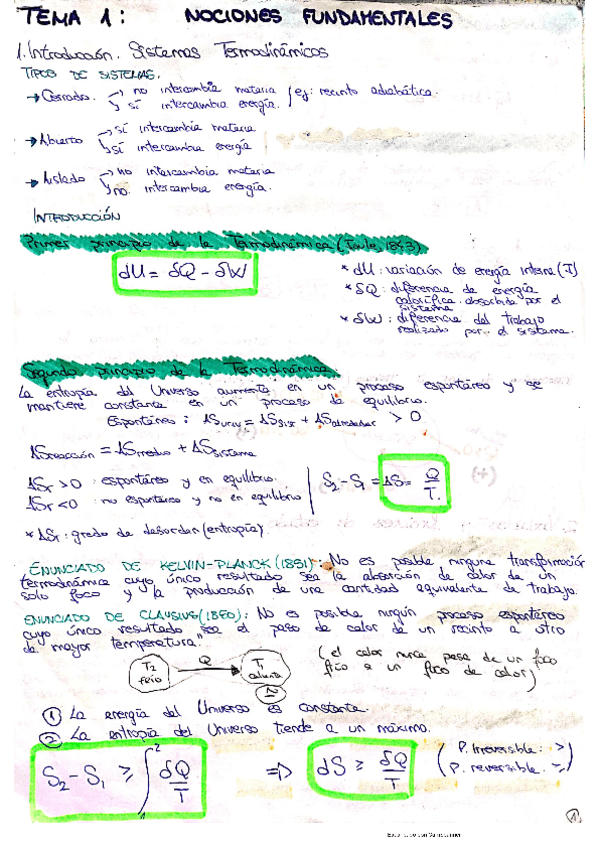 TEMA 1: NOCIONES FUNDAMENTALES
1. Introducción. Sistemas Termodinámicos
TIPOS DE SISTEMAS.
→ Cerrado. → no intercambia materia / ej: recinto adiabático.
↘ sí intercambia energía.
→ Abierto → sí intercambia materia
↘ sí intercambia energía
→ Aislado → no intercambia materia
↘ no intercambia energía.
INTRODUCCIÓN
Primer principio de la Termodinámica (Joule, 1843)
dU = δQ - δW
* dU: variación de energía interna (J)
* δQ: diferencia de energía
calorífica absorbida por el
sistema
* δW: diferencia del trabajo
realizado por el sistema.
Segundo principio de la Termodinámica:
La entropía del Universo aumenta en un proceso espontáneo y se
mantiene constante en un proceso de equilibrio.
Espontáneo: ΔSuniv = ΔSsist + ΔSalrededor > 0
ΔSreacción = ΔSmedio + ΔSsistema
ΔSr > 0 : espontáneo y en equilibrio.
ΔSr < 0 : no espontáneo y no en equilibrio
S2 - S1 = ΔS = Q/T.
* ΔSr: grado de desorden (entropía).
ENUNCIADO DE KELVIN-PLANCK (1851): No es posible ninguna transformación
termodinámica cuyo único resultado sea la absorción de calor de un
solo foco y la producción de una cantidad equivalente de trabajo.
ENUNCIADO DE CLAUSIUS (1850): No es posible ningún proceso espontáneo
cuyo único resultado sea el paso de calor de un recinto a otro
de mayor temperatura."
T2 frío Q T1
(el calor nunca pasa de un foco
frío a un foco de calor)
① La energía del Universo es constante.
② La entropía del Universo tiende a un máximo.
S2 - S1 ≥ ∫₁² δQ/T ⇒ dS ≥ δQ/T
(P. Irreversible: >
P. reversible: =)
1